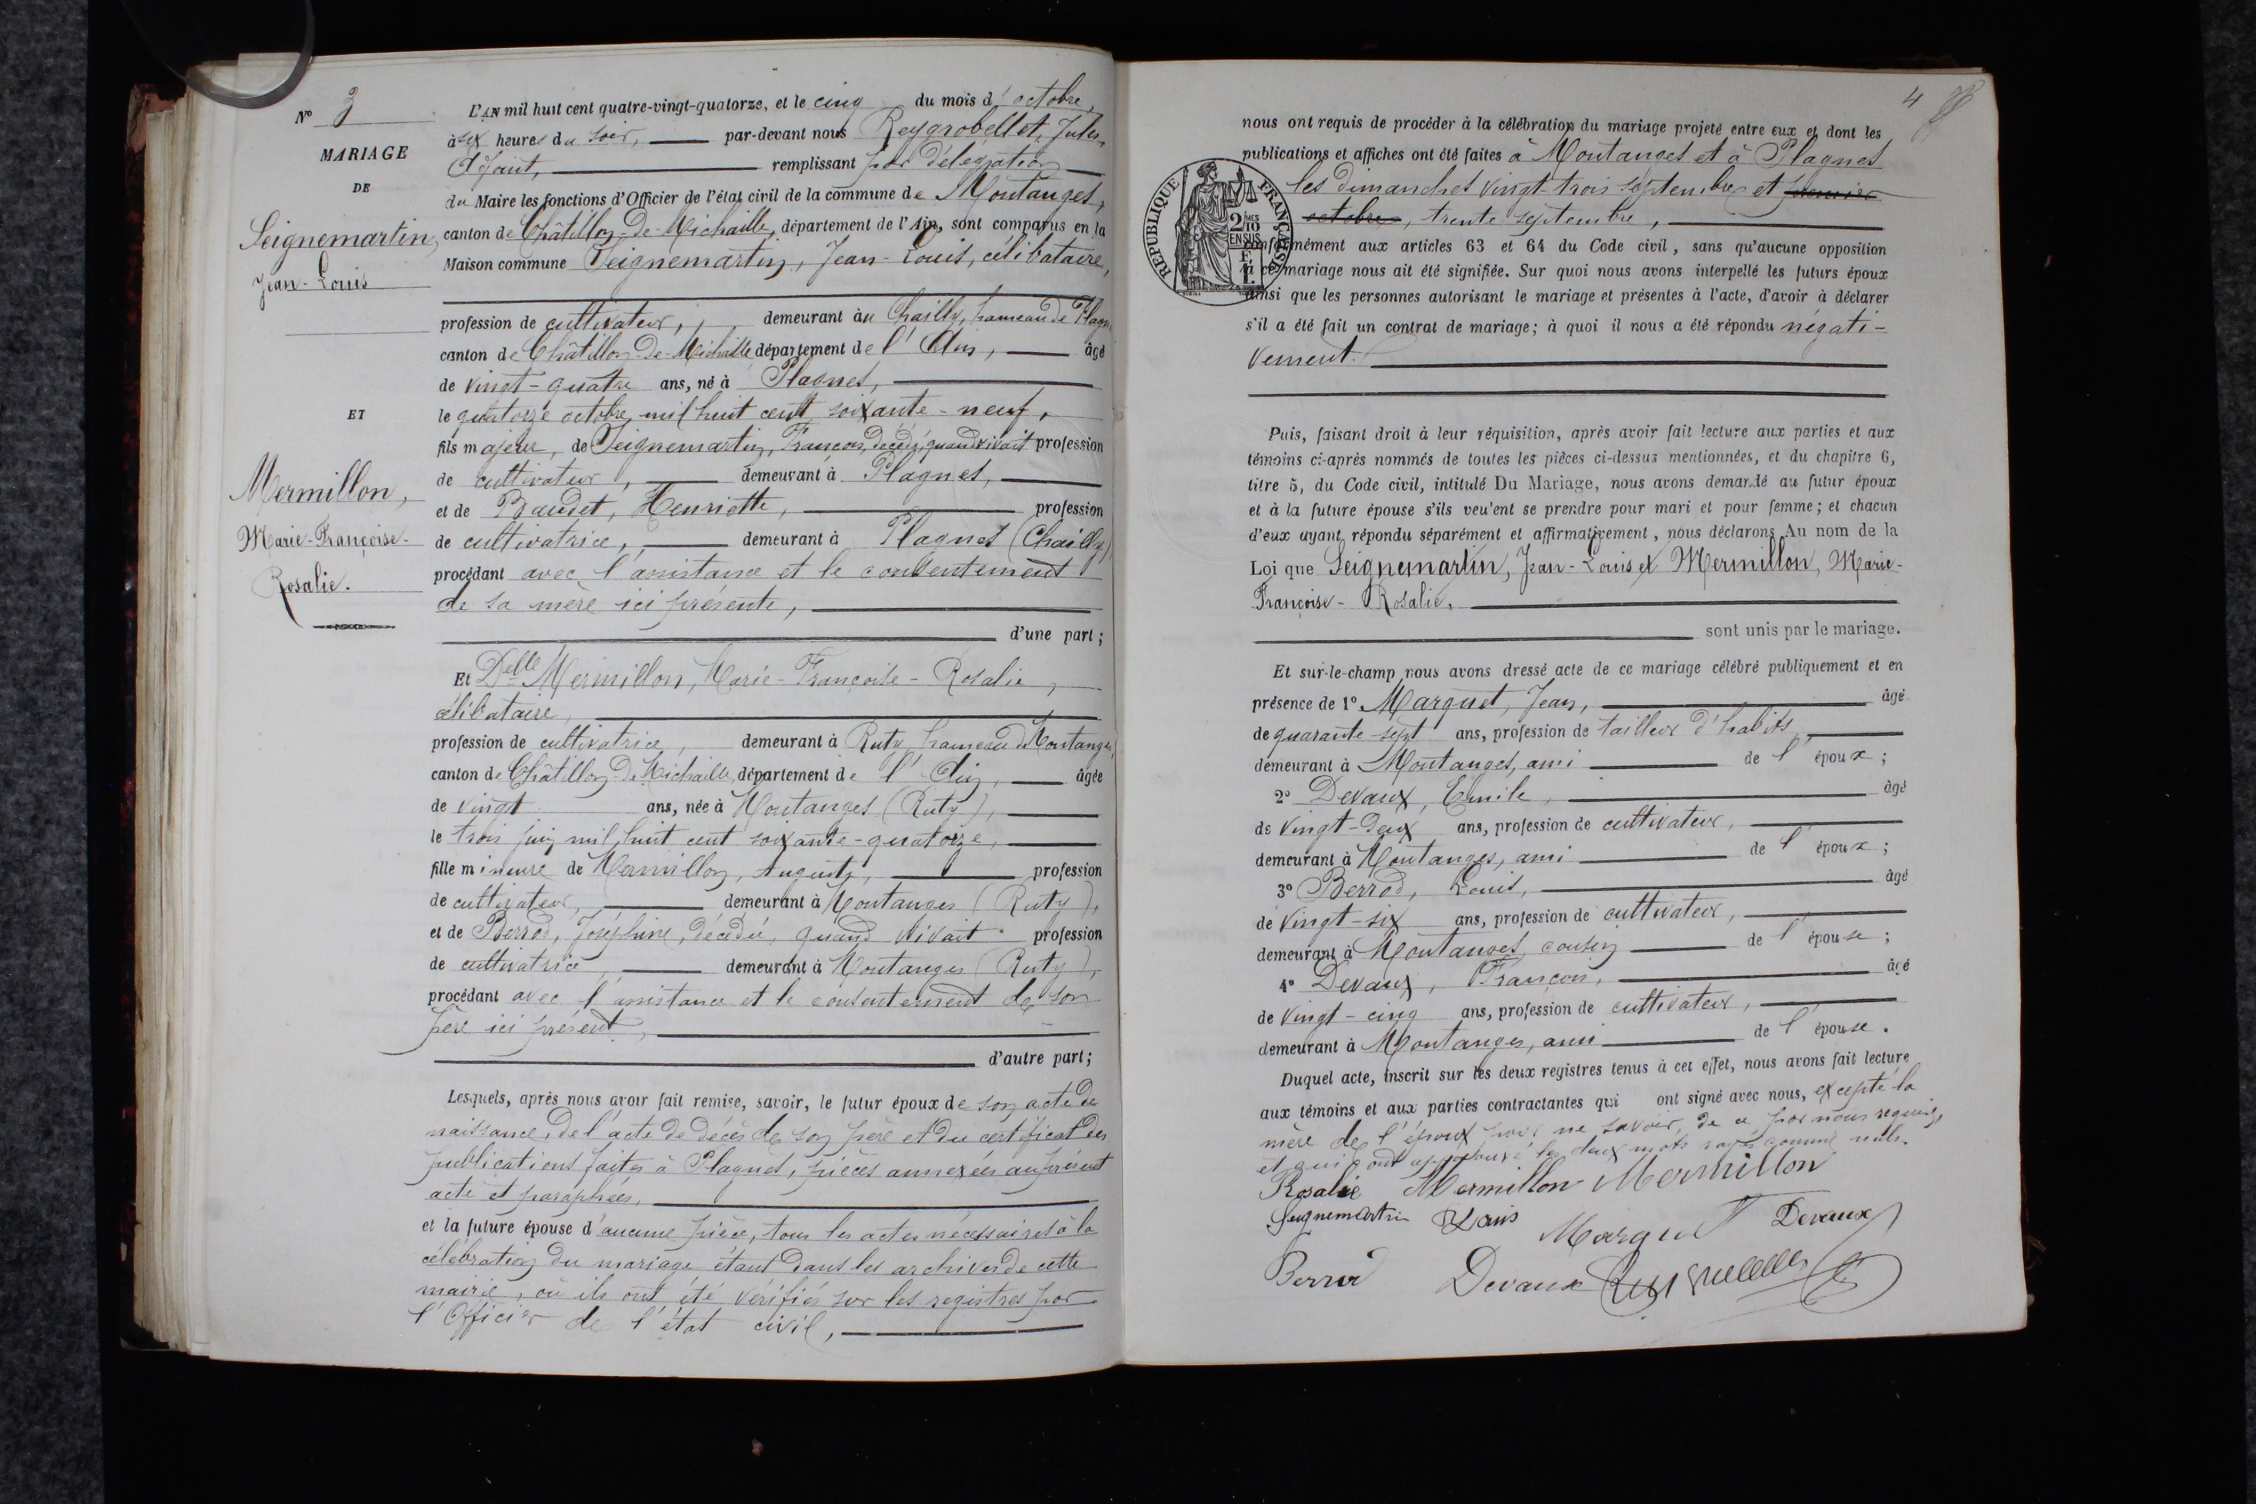 N° 3
MARIAGE
DE
Seignemartin,
Jean-Louis
ET
Mermillon,
Marie-Françoise-
Rosalie.
L'AN mil huit cent quatre-vingt-quatorze, et le cinq du mois d'octobre,
à six heures du soir, par-devant nous Reygrobellet, Jules
Adjoint, remplissant par délégation
du Maire les fonctions d'Officier de l'état civil de la commune de Montanges,
canton de Châtillon-de-Michaille, département de l'Ain, sont comparus en la
Maison commune Seignemartin, Jean-Louis, célibataire,
profession de cultivateur, demeurant à Chailly, hameau de Plagnes
canton de Châtillon-de-Michaille département de l'Ain, âgé
de vingt-quatre ans, né à Plagnes,
le quatorze octobre mil huit cent soixante-neuf,
fils majeur, de Seignemartin, François, décédé, quand vivait profession
de cultivateur, demeurant à Plagnes,
et de Baudet, Henriette, profession
de cultivatrice, demeurant à Plagnes (Chailly)
procédant avec l'assistance et le consentement
de sa mère ici présente,
d'une part;
Et Delle Mermillon, Marie-Françoise-Rosalie,
célibataire,
profession de cultivatrice, demeurant à Ruty, hameau de Montanges,
canton de Châtillon-de-Michaille, département de l'Ain, âgée
de vingt ans, née à Montanges (Ruty),
le trois juin mil huit cent soixante-quatorze,
fille mineure de Mermillon, Auguste, profession
de cultivateur, demeurant à Montanges (Ruty),
et de Berrod, Joséphine, décédée, quand vivait profession
de cultivatrice, demeurant à Montanges (Ruty),
procédant avec l'assistance et le consentement de son
père ici présent,
d'autre part;
Lesquels, après nous avoir fait remise, savoir, le futur époux de son acte de
naissance, de l'acte de décès de son père et du certificat des
publications faites à Plagnes, pièces annexées au présent
acte et paraphées,
et la future épouse d'aucune pièce, tous les actes nécessaires à la
célébration du mariage étant dans les archives de cette
mairie, où ils ont été vérifiés sur les registres par
l'Officier de l'état civil,
4
nous ont requis de procéder à la célébration du mariage projeté entre eux et dont les
publications et affiches ont été faites à Montanges et à Plagnes
les dimanches vingt-trois septembre et premier
octobre, trente septembre,
RÉPUBLIQUE FRANÇAISE
2/10 EN SUS
1 F.
conformément aux articles 63 et 64 du Code civil, sans qu'aucune opposition
à ce mariage nous ait été signifiée. Sur quoi nous avons interpellé les futurs époux
ainsi que les personnes autorisant le mariage et présentes à l'acte, d'avoir à déclarer
s'il a été fait un contrat de mariage; à quoi il nous a été répondu négati-
vement.
Puis, faisant droit à leur réquisition, après avoir fait lecture aux parties et aux
témoins ci-après nommés de toutes les pièces ci-dessus mentionnées, et du chapitre 6,
titre 5, du Code civil, intitulé Du Mariage, nous avons demandé au futur époux
et à la future épouse s'ils veulent se prendre pour mari et pour femme; et chacun
d'eux ayant répondu séparément et affirmativement, nous déclarons Au nom de la
Loi que Seignemartin, Jean-Louis et Mermillon, Marie-
Françoise-Rosalie,
sont unis par le mariage.
Et sur-le-champ nous avons dressé acte de ce mariage célébré publiquement et en
présence de 1° Marquet, Jean, âgé
de quarante-sept ans, profession de tailleur d'habits,
demeurant à Montanges, ami de l'époux;
2° Devaux, Emile, âgé
de vingt-deux ans, profession de cultivateur,
demeurant à Montanges, ami de l'époux;
3° Berrod, Louis, âgé
de vingt-six ans, profession de cultivateur,
demeurant à Montanges, cousin de l'épouse;
4° Devaux, François, âgé
de vingt-cinq ans, profession de cultivateur,
demeurant à Montanges, ami de l'épouse.
Duquel acte, inscrit sur les deux registres tenus à cet effet, nous avons fait lecture
aux témoins et aux parties contractantes qui ont signé avec nous, excepté la
mère de l'époux pour ne savoir, de ce par nous requise,
et qui ont approuvé les deux mots rayés comme nuls.
Rosalie Mermillon Mermillon
Seignemartin Louis Marquet Devaux
Berrod Devaux